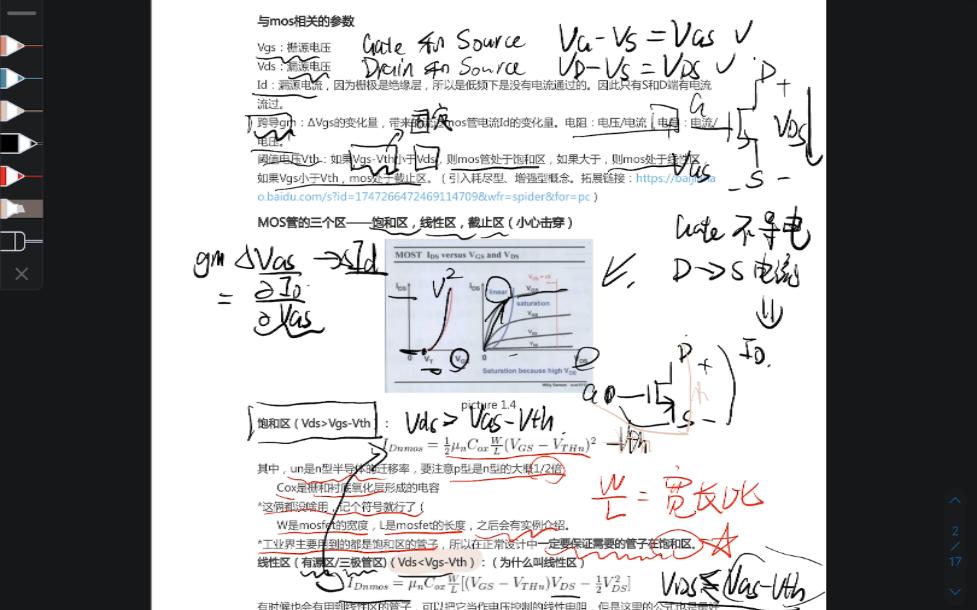 与mos相关的参数
Vgs：栅源电压 Gate 和 Source VG-VS=VGS ✓
Vds：漏源电压 Drain 和 Source VD-VS=VDS ✓
Id：漏源电流，因为栅极是绝缘层，所以是低频下是没有电流通过的。因此只有S和D端有电流
流过。
D +
G
VDS
VGS
- S -
固定
跨导gm：ΔVgs的变化量，带来的 mos管电流Id的变化量。电阻：电压/电流，电导：电流/
电压。
阈值电压Vth：如果Vgs-Vth小于Vds，则mos管处于饱和区，如果大于，则mos处于线性区
如果Vgs小于Vth，mos处于截止区。（引入耗尽型、增强型概念。拓展链接：https://baijia
o.baidu.com/s?id=1747266472469114709&wfr=spider&for=pc）
MOS管的三个区——饱和区，线性区，截止区（小心击穿）
Gate 不导电
D → S 电流
⇓
gm ΔVGS → ΔId
= ∂ID
∂VGS
MOST IDS versus VGS and VDS
IDS
V²
0
VT
VGS
IDS
linear
saturation
VGS
VGS
VGS
VGS
0
VDS
Saturation because high VDS
Willy Sansen
picture 1.4
D +
ID
G
S -
饱和区（Vds>Vgs-Vth）： Vds > VGS-Vth
IDnmos = ½μnCox W/L (VGS − VTHn)²
Vth
其中，un是n型半导体的迁移率，要注意p型是n型的大概1/2倍
Cox是栅和衬底氧化层形成的电容
*这俩都没啥用，记个符号就行了（
W是mosfet的宽度，L是mosfet的长度，之后会有实例介绍。
W/L = 宽长比
*工业界主要用到的都是饱和区的管子，所以在正常设计中一定要保证需要的管子在饱和区。
线性区（有源区/三极管区）（Vds<Vgs-Vth）：（为什么叫线性区）
IDnmos = μnCox W/L [(VGS − VTHn)VDS − ½V²DS]
VDS ≤ (VGS-Vth
有时候也会有用到线性区的管子，可以把它当作电压控制的线性电阻，但是这里的公式也是最好
2
/
17